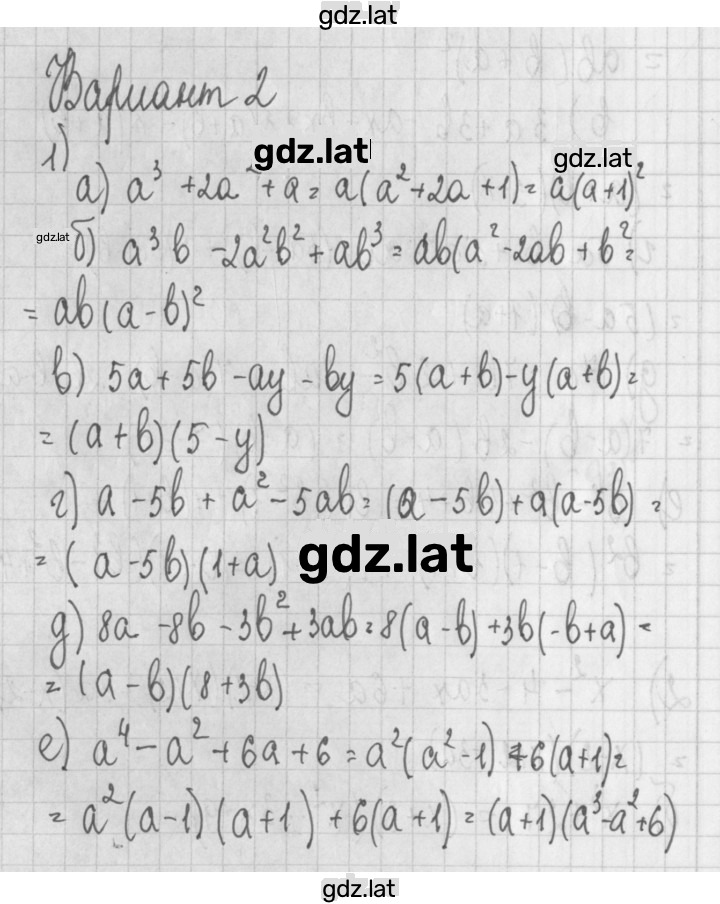 gdz.lat
Вариант 2
1)
gdz.lat
gdz.lat
а) a³ + 2a² + a = a(a² + 2a + 1) = a(a+1)²
gdz.lat
б) a³b - 2a²b² + ab³ = ab(a² - 2ab + b² =
= ab(a - b)²
в) 5a + 5b - ay - by = 5(a + b) - y(a + b) =
= (a + b)(5 - y)
г) a - 5b + a² - 5ab = (a - 5b) + a(a - 5b) =
= (a - 5b)(1 + a)
gdz.lat
д) 8a - 8b - 3b² + 3ab = 8(a - b) + 3b(-b + a) =
= (a - b)(8 + 3b)
е) a⁴ - a² + 6a + 6 = a²(a² - 1) + 6(a + 1) =
= a²(a - 1)(a + 1) + 6(a + 1) = (a + 1)(a³ - a² + 6)
gdz.lat